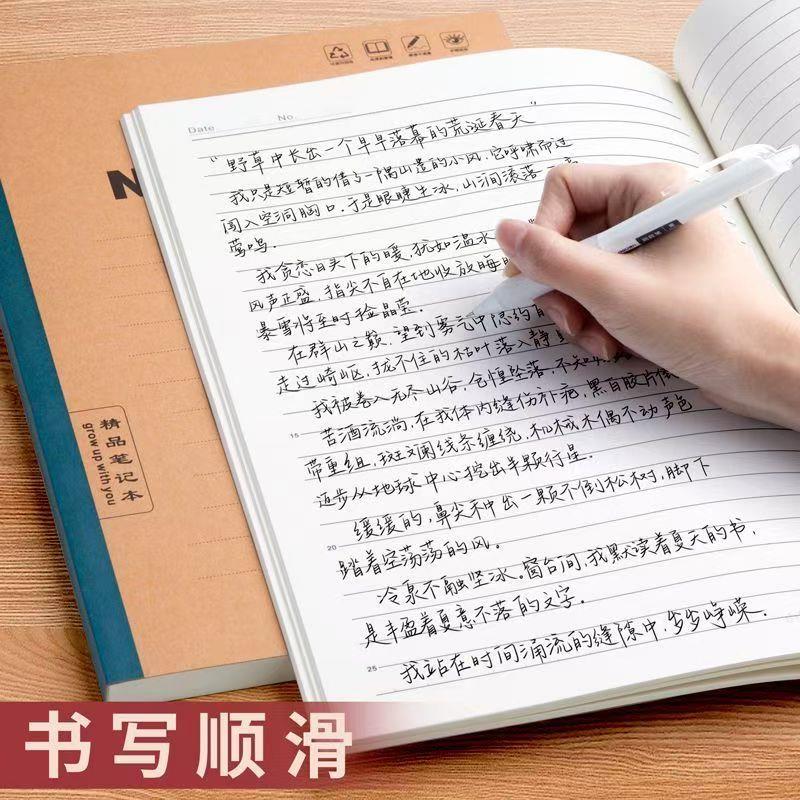 Date No.
"野草中长出一个早早落幕的荒诞春天"
我只是短暂的借了一隅山造的小风,它呼啸而过
闯入空洞胸口,于是眼睫生冰,山涧滚落
莺鸣.
我贪恋日头下的暖,犹如温水
风声正盛,指尖不自在地收放
暴雪将至时捡晶莹.
在群山之巅,望到雾气中隐约
走过崎岖,拢不住的枯叶落入静
我被卷入无尽山谷,仓惶坠落,不知
15
苦酒流淌,在我体内缝伤补疤,黑白胶片
带重组,斑斓线条缠绕,机械木偶不动声色
迈步从地球中心挖出半颗行星.
缓缓的,鼻尖种出一颗不倒松树,脚下
20
踏着空荡荡的风.
冷泉不融坚冰.窗台间,我默读着夏天的书,
是丰盈着夏意不落的文字.
25
我站在时间涌流的缝隙中,步步峥嵘.
N
精品笔记本
grow up with you
书写顺滑